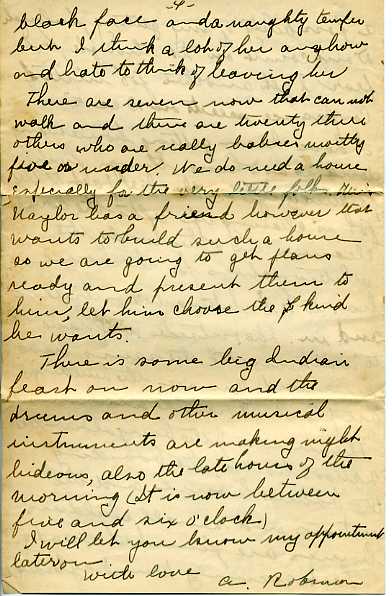 -4-
black face and a naughty temper
but I think a lot of her anyhow
and hate to think of leaving her
There are seven now that can not
walk and there are twenty three
others who are really babies mostly
five or under. We do need a house
especially for the very little folk. Miss
Naylor has a friend however that
wants to build such a house
so we are going to get plans
ready and present them to
him, let him choose the kind
he wants.
There is some big Indian
feast on now and the
drums and other musical
instruments are making night
hideous, also the late hours of the
morning (It is now between
five and six o'clock)
I will let you know my appointment
later on
With love
A. Robinson